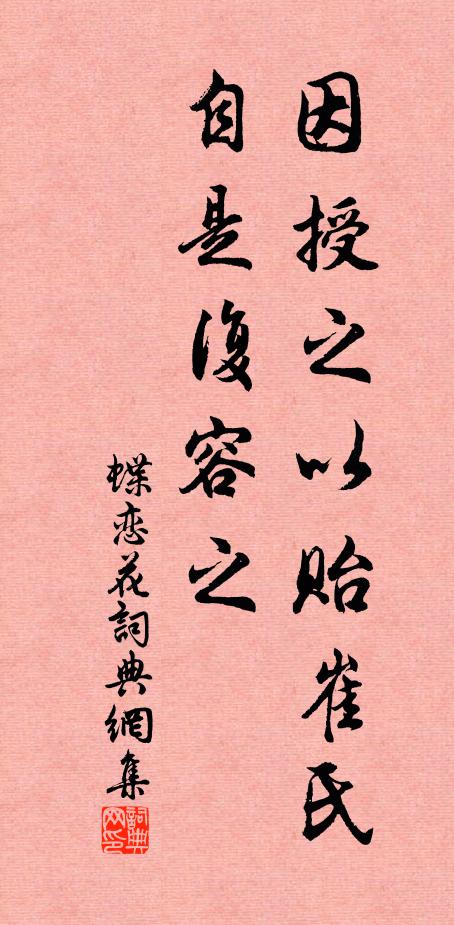 因授之以貽崔氏
自是復容之
蝶恋花詞典網集
詞典网印